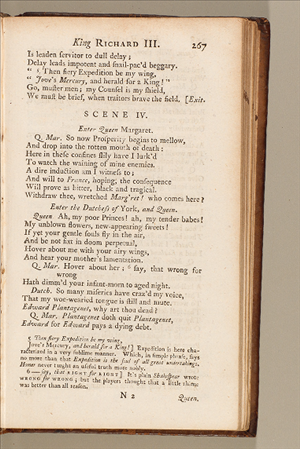 King RICHARD III. 267
Is leaden servitor to dull delay;
Delay leads impotent and snail-pac'd beggary.
" 5 Then fiery Expedition be my wing,
" Jove's Mercury, and herald for a King!"
Go, muster men; my Counsel is my shield,
We must be brief, when traitors brave the field. [Exit.
SCENE IV.
Enter Queen Margaret.
Q. Mar. So now Prosperity begins to mellow,
And drop into the rotten mouth of death:
Here in these confines slily have I lurk'd
To watch the waining of mine enemies.
A dire induction am I witness to;
And will to France, hoping, the consequence
Will prove as bitter, black and tragical.
Withdraw thee, wretched Marg'ret! who comes here?
Enter the Dutchess of York, and Queen.
Queen Ah, my poor Princes! ah, my tender babes!
My unblown flowers, new-appearing sweets!
If yet your gentle souls fly in the air,
And be not fixt in doom perpetual,
Hover about me with your airy wings,
And hear your mother's lamentation.
Q. Mar. Hover about her; 6 say, that wrong for
wrong
Hath dimm'd your infant-morn to aged night.
Dutch. So many miseries have craz'd my voice,
That my woe-wearied tongue is still and mute.
Edward Plantagenet, why art thou dead?
Q. Mar. Plantagenet doth quit Plantagenet,
Edward for Edward pays a dying debt.
5 Then fiery Expedition be my wing,
Jove's Mercury, and herald for a King!] Expedition is here cha-
racterized in a very sublime manner. Which, in simple phrase, says
no more than that Expedition is the soul of all great undertakings.
Homer never taught an useful truth more nobly.
6 — say, that RIGHT for RIGHT] It's plain Shakespear wrote
WRONG for WRONG; but the players thought that a little rhime
was better than all reason.
N 2 Queen.